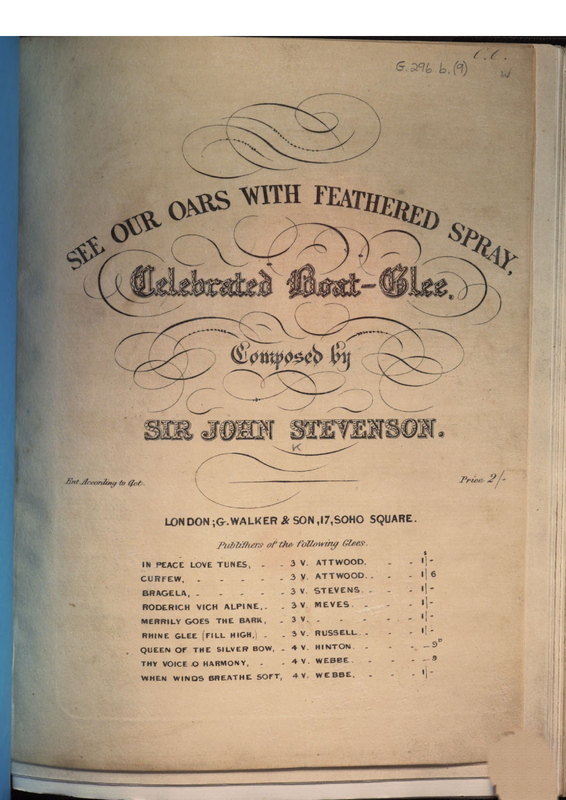 C.C.
G.296.b.(9)
W
SEE OUR OARS WITH FEATHERED SPRAY,
Celebrated Boat-Glee.
Composed by
SIR JOHN STEVENSON.
K
Ent. According to Act. Price 2/-
LONDON; G. WALKER & SON, 17, SOHO SQUARE.
Publishers of the following Glees.
s
IN PEACE LOVE TUNES, - - 3 V. ATTWOOD. - - 1 -
CURFEW, - - - - - 3 V. ATTWOOD. - - - 1 6
BRAGELA, - - - - - 3 V. STEVENS. - - - 1 -
RODERICH VICH ALPINE, - - 3 V. MEVES. - - - 1 -
MERRILY GOES THE BARK, - 3 V. - - - - - 1 -
RHINE GLEE (FILL HIGH,) - - 3 V. RUSSELL. - - - 1 -
QUEEN OF THE SILVER BOW, - 4 V. HINTON. - - - 9D
THY VOICE O HARMONY, - - 4 V. WEBBE. - - - 9
WHEN WINDS BREATHE SOFT, 4 V. WEBBE. - - - 1 -